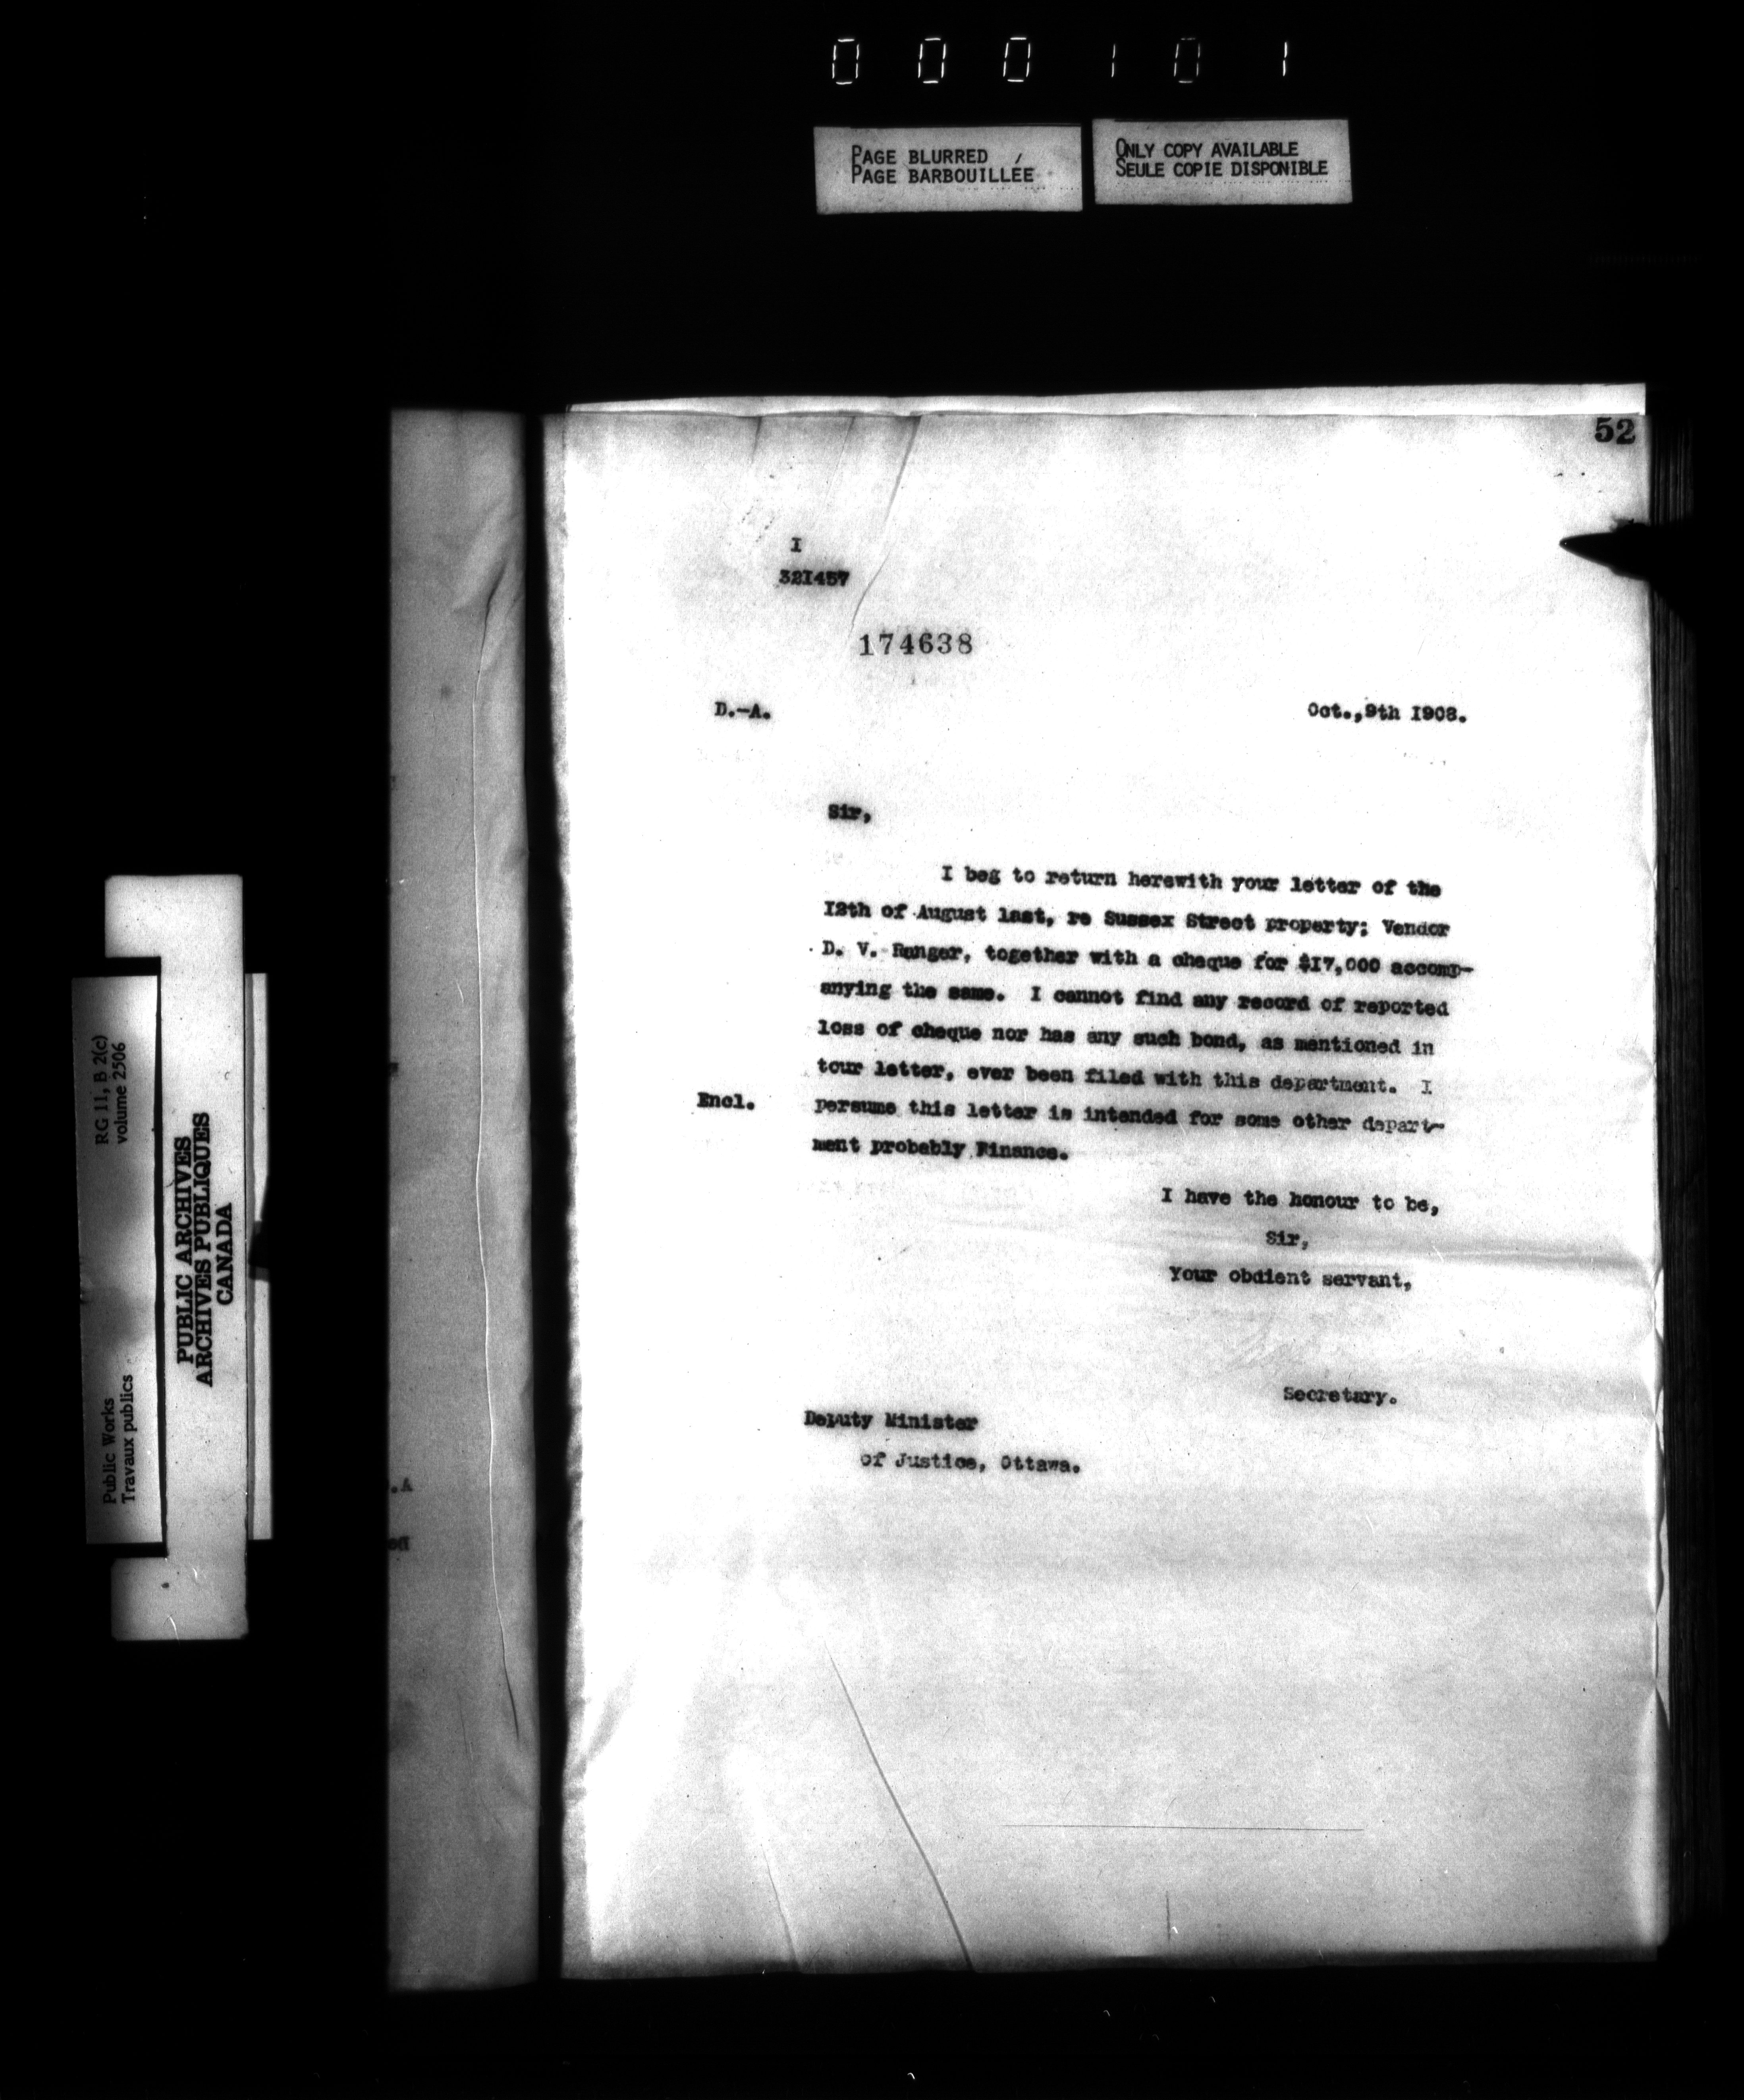 000101
PAGE BLURRED
PAGE BARBOUILLÉE
ONLY COPY AVAILABLE
SEULE COPIE DISPONIBLE
52
I
321457
174638
D.-A.
Oct.,9th 1908.
Sir,
I beg to return herewith your letter of the
12th of August last, re Sussex Street property; Vendor
D. V. Ranger, together with a cheque for $17,000 accomp-
anying the same. I cannot find any record of reported
loss of cheque nor has any such bond, as mentioned in
tour letter, ever been filed with this department. I
Encl.
persume this letter is intended for some other depart-
ment probably Finance.
I have the honour to be,
Sir,
Your obdient servant,
Secretary.
Deputy Minister
of Justice, Ottawa.
RG 11, B 2(c)
volume 2506
Public Works
Travaux publics
PUBLIC ARCHIVES
ARCHIVES PUBLIQUES
CANADA